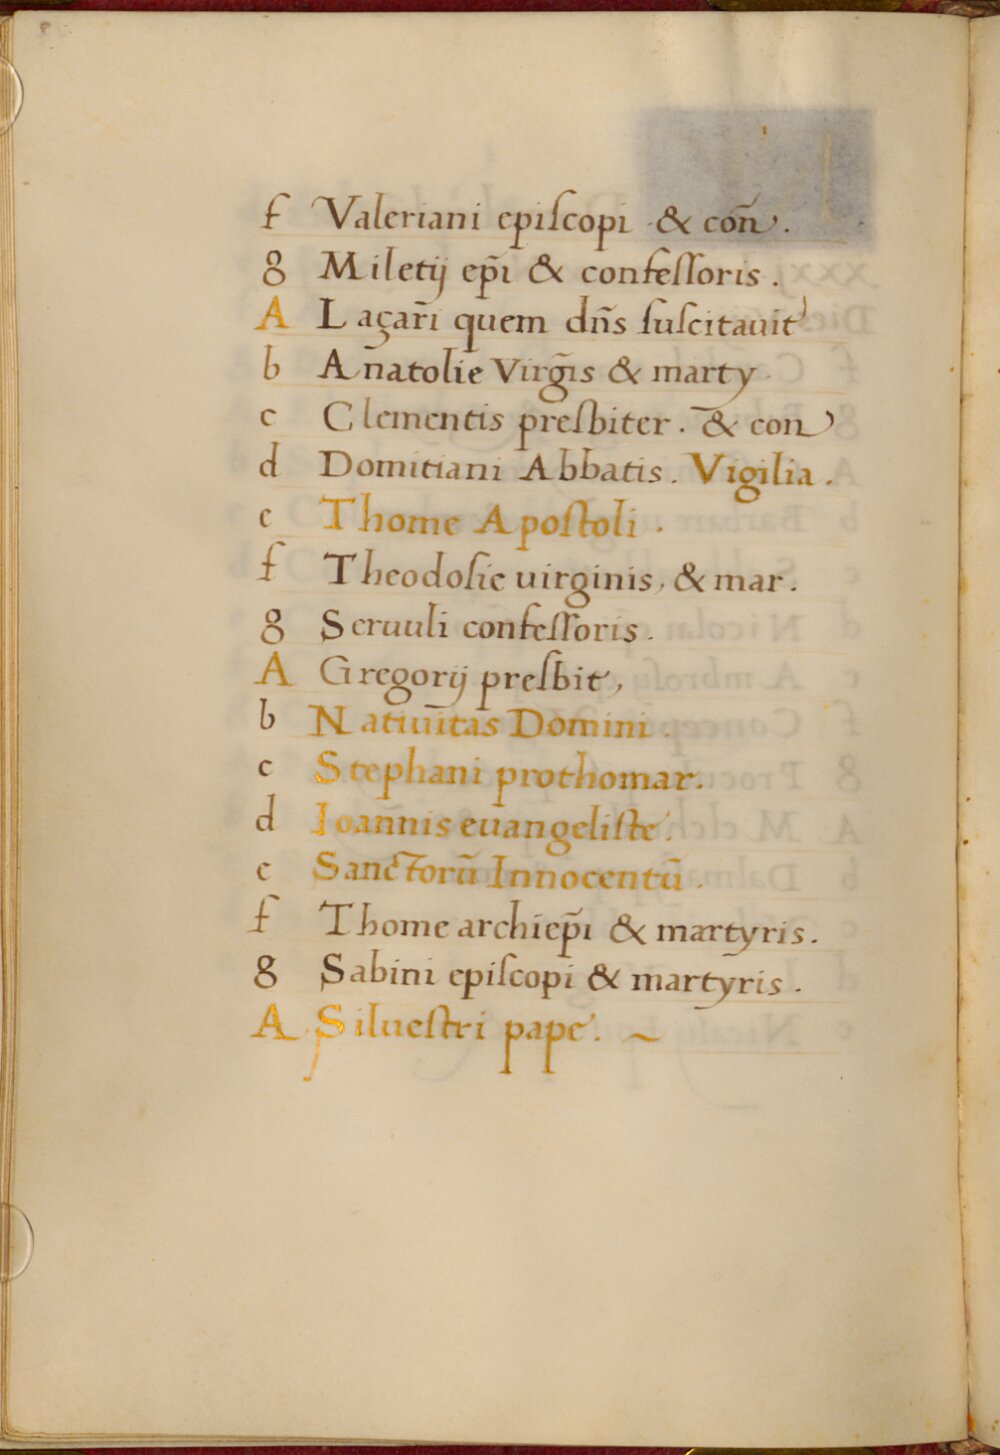 f Valeriani epiſcopi & con̄.
g Miletij ep̄i & confeſſoris.
A Laçar̄i quem dn̄s ſuſcitauit
b An̄atolie Virḡis & marty
c Clementis preſbiter. & con
d Domitiani Abbatis. Vigilia.
e Thome Apoſtoli.
f Theodoſie uirginis, & mar.
g Seruuli confeſſoris.
A Gregorij preſbit,
b Natiuītas Domini.
c Stephani prothomar.
d Ioan̄nis euangeliſte.
e Sanctorū Innocentū.
f Thome archiep̄i & martyris.
g Sabini epiſcopi & martyris.
A Silueſtri pape. ~